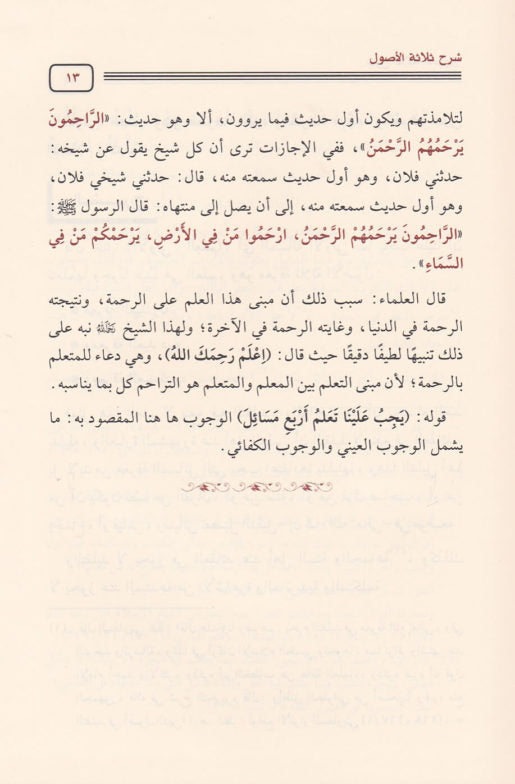 شرح ثلاثة الأصول
١٣
لتلامذتهم ويكون أول حديث فيما يروون، ألا وهو حديث: «الرَّاحِمُونَ
يَرْحَمُهُمُ الرَّحْمَنُ»، ففي الإجازات ترى أن كل شيخ يقول عن شيخه:
حدثني فلان، وهو أول حديث سمعته منه، قال: حدثني شيخي فلان،
وهو أول حديث سمعته منه، إلى أن يصل إلى منتهاه: قال الرسول ﷺ:
«الرَّاحِمُونَ يَرْحَمُهُمْ الرَّحْمَنُ، ارْحَمُوا مَنْ فِي الأَرْضِ، يَرْحَمْكُمْ مَنْ فِي
السَّمَاءِ».
قال العلماء: سبب ذلك أن مبنى هذا العلم على الرحمة، ونتيجته
الرحمة في الدنيا، وغايته الرحمة في الآخرة؛ ولهذا الشيخ رحمه الله نبه على
ذلك تنبيهًا لطيفًا دقيقًا حيث قال: (اِعْلَمْ رَحِمَكَ اللهُ)، وهي دعاء للمتعلم
بالرحمة؛ لأن مبنى التعلم بين المعلم والمتعلم هو التراحم كل بما يناسبه.
قوله: (يَجِبُ عَلَيْنَا تَعَلمُ أَرْبَعِ مَسَائِلَ) الوجوب ها هنا المقصود به: ما
يشمل الوجوب العيني والوجوب الكفائي.